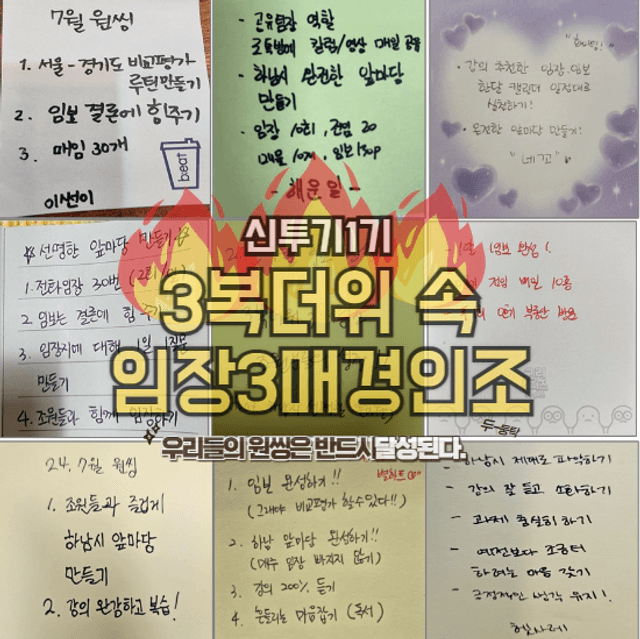 7월 원씽
1. 서울 - 경기도 비교평가
루틴만들기
2. 임보 결론에 힘주기
3. 매임 30개
beat
이썬이
- 조장 역할
- 하남시 완전한 앞마당
만들기
- 임장 10회,
매물 10개, 임보 150p
- 해운일 -
강의 추천한 임장.임보
한달 캘린더 일정대로
실천하기!
· 온전한 앞마당 만들기!
"네꼬"
신투기1기
3복더위 속
임장3매경인조
우리들의 원씽은 반드시달성된다.
선명한 앞마당 만들기
1. 전화임장 30번
2. 임보는 결론에 힘 주기
3. 임장지에 대해 1일 1질문
만들기
4. 조원들과 함께 임장하기
매일 10통
두-통탁
24. 7월 원씽
1. 조원들과 즐겁게
하남시 앞마당
만들기
2. 강의 완강하고 복습!
1. 임보 완성하기!!
(그래야 비교평가 할 수 있다!!)
2. 하남 앞마당 완성하기!!
(매주 임장 빠지지 않기)
3. 강의 200% 듣기
4. 흔들리는 마음잡기 (독서)
- 하남시 제대로 파악하기
- 강의 잘 듣고 소화하기
- 과제 충실히 하기
- 예전보다 조금더
하려는 마음 갖기
- 긍정적인 생각 유지!
햇사레